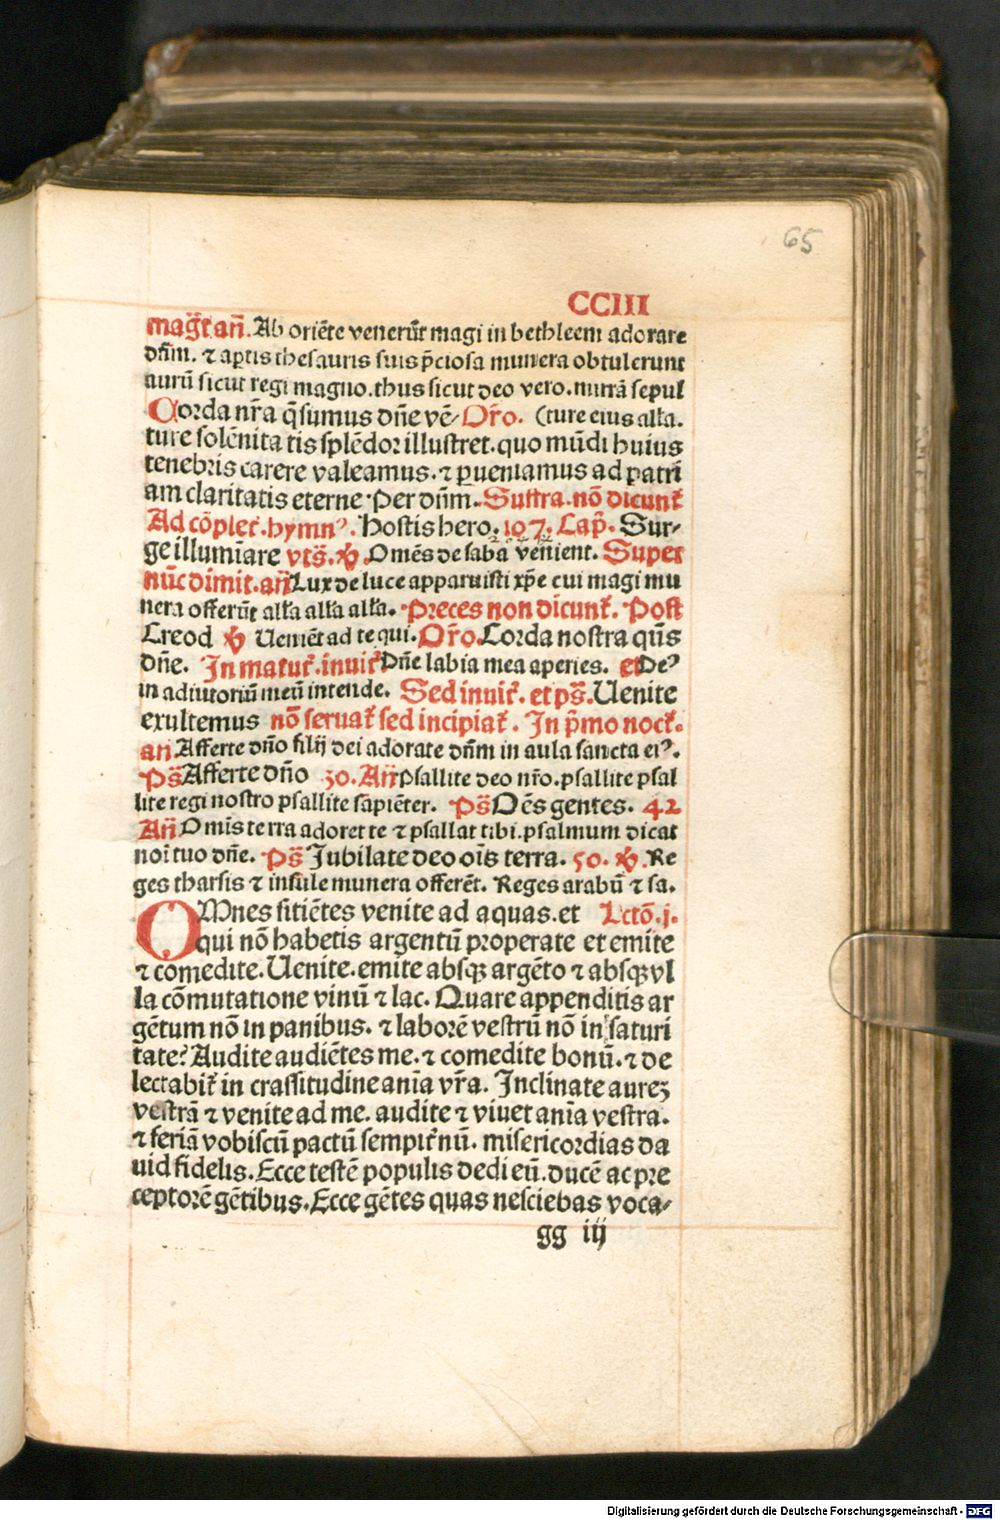 65
CCIII
mag̃t an̄. Ab oriēte venerūt magi in bethleem adorare
dn̄m. ⁊ aꝑtis thesauris suis p̄ciosa munera obtulerunt
aurū sicut regi magno. thus sicut deo vero. mirrā sepul
Corda nr̄a q̄sumus dn̄e vē⸗ Or̄o. (ture eius alt̄a.
ture solēnitatis splēdor illustret. quo mūdi huius
tenebris carere valeamus. ⁊ ꝑueniamus ad patri
am claritatis eterne. Per dn̄m. Suffra. nō dicunt᷑
Ad cōplet᷑. hymn᷒. Hostis hero. 107. Cap̄. Sur⸗
ge illumiare vts̄. ℣. Omēs de saba venient. Super
nūc dimit. an̄ Lux de luce apparuisti xp̄e cui magi mu
nera offerūt alt̄a alt̄a alt̄a. Preces non dicunt᷑. Post
Creod ℣ Ueniēt ad te qui. Or̄o. Corda nostra qūs
dn̄e. In matut᷑. inuit᷑ Dn̄e labia mea aperies. et De᷒
in adiutoriū meū intende. Sed inuit᷑. et ps̄. Uenite
exultemus nō seruat᷑ sed incipiat᷑. In p̄mo noct᷑.
an̄ Afferte dn̄o filij dei adorate dn̄m in aula sancta ei᷒.
Ps̄ Afferte dn̄o 30. An̄ Psallite deo nr̄o. psallite psal
lite regi nostro psallite sapiēter. Ps̄ Oēs gentes. 42
An̄ Omīs terra adoret te ⁊ psallat tibi. psalmum dicat
noī tuo dn̄e. Ps̄ Jubilate deo oīs terra. 50. ℣. Re
ges tharsis ⁊ insule munera offerēt. Reges arabū ⁊ sa.
OMnes sitiētes venite ad aquas. et Lctō. j.
qui nō habetis argentū properate et emite
⁊ comedite. Uenite. emite absqꝫ argēto ⁊ absqꝫ vl
la cōmutatione vinū ⁊ lac. Quare appenditis ar
gētum nō in panibus. ⁊ laborē vestrū nō in saturi
tate? Audite audiētes me. ⁊ comedite bonū. ⁊ de
lectabit᷑ in crassitudine anīa vr̄a. Inclinate aureꝫ
vestrā ⁊ venite ad me. audite ⁊ viuet anīa vestra.
⁊ feriā vobiscū pactū sempit᷑nū. misericordias da
uid fidelis. Ecce testē populis dedi eū. ducē ac pre
ceptorē gētibus. Ecce gētes quas nesciebas voca⸗
gg iij
Digitalisierung gefördert durch die Deutsche Forschungsgemeinschaft - DFG